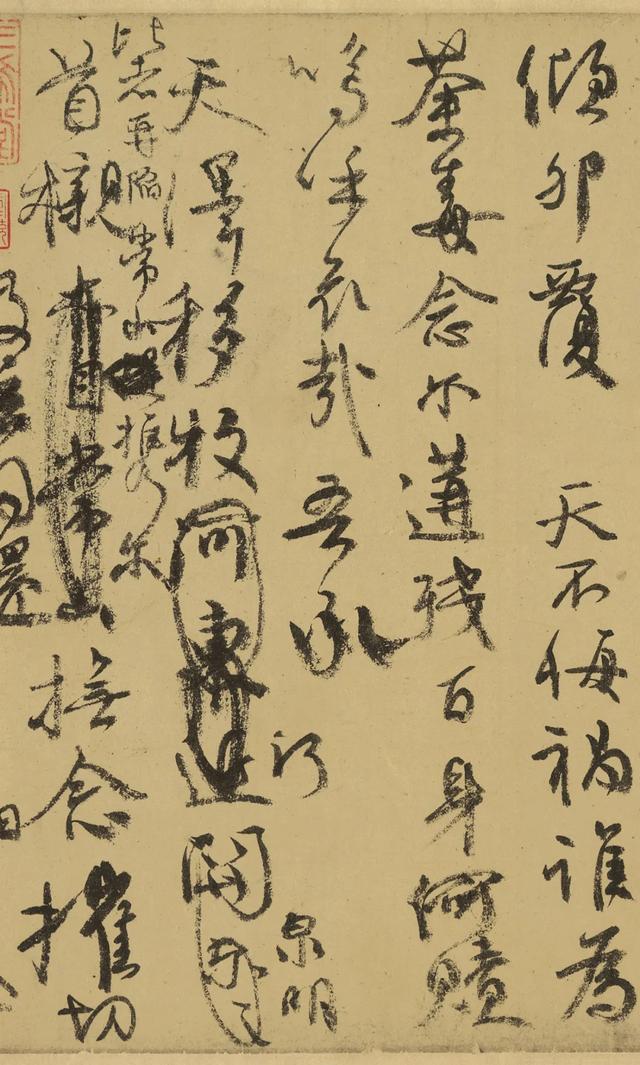 傾卵覆　天不悔禍誰為
荼毒念尔遘殘百身何贖
嗚呼哀哉吾承
天澤移牧河關
泉明
比者再陷常山携尔
首櫬亦自常山撫念摧切
及茲同還